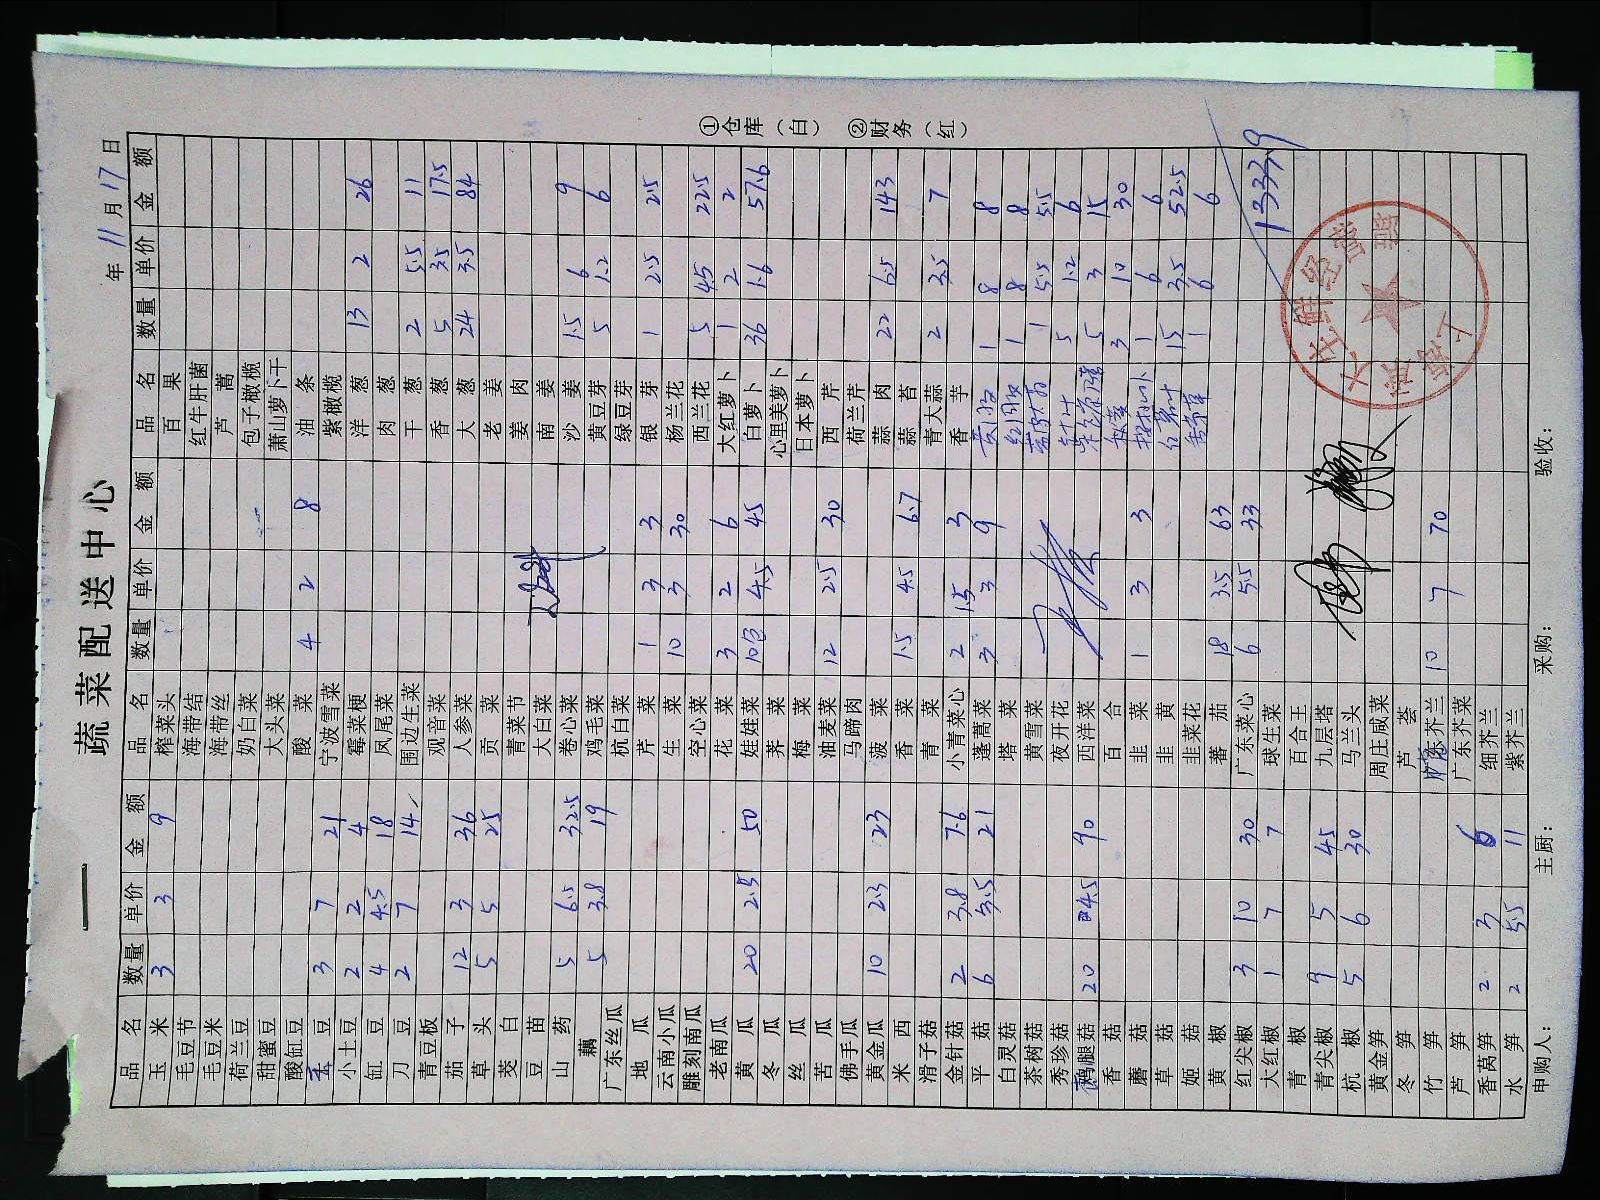 蔬菜配送中心
年 11 月 17 日
品名 数量 单价 金额 品名 数量 单价 金额 品名 数量 单价 金额
玉米 3 3 9 榨菜头 百果
毛豆节 海带结 红牛肝菌
毛豆米 海带丝 芦蒿
荷兰豆 奶白菜 包子橄榄
甜蜜豆 大头菜 萧山萝卜干
酸缸豆 酸菜 4 2 8 油条
豆 3 7 21 宁波雪菜 紫橄榄
小土豆 2 2 4 霉菜梗 洋葱 13 2 26
缸豆 4 4.5 18 凤尾菜 肉葱
刀豆 2 7 14 围边生菜 干葱 2 5.5 11
青豆板 观音菜 香葱 5 3.5 17.5
茄子 12 3 36 人参菜 大葱 24 3.5 84
草头 5 5 25 贡菜 老姜
茭白 青菜节 姜肉
豆苗 大白菜 南姜
山药 5 6.5 32.5 卷心菜 沙姜 1.5 6 9
藕 5 3.8 19 鸡毛菜 黄豆芽 5 1.2 6
广东丝瓜 杭白菜 绿豆芽
地瓜 芹菜 1 3 3 银芽 1 2.5 2.5
云南小瓜 生菜 10 3 30 杨兰花
雕刻南瓜 空心菜 西兰花 5 4.5 22.5
老南瓜 花菜 3 2 6 大红萝卜 1 2 2
黄瓜 20 2.5 50 娃娃菜 10包 4.5 45 白萝卜 36 1.6 57.6
冬瓜 荠菜 心里美萝卜
丝瓜 梅菜 日本萝卜
苦瓜 油麦菜 12 2.5 30 西芹
佛手瓜 马蹄肉 荷兰芹
黄金瓜 10 2.3 23 菠菜 蒜肉 22 6.5 143
米西 香菜 1.5 4.5 6.7 蒜苔
滑子菇 青菜 青大蒜 2 3.5 7
金针菇 2 3.8 7.6 小青菜心 2 1.5 3 香芋
平菇 6 3.5 21 蓬蒿菜 3 3 9 1 8 8
白灵菇 塔菜 1 8 8
茶树菇 黄雪菜 1 5.5 5.5
秀珍菇 夜开花 5 1.2 6
鸡腿菇 20 4.5 90 西洋菜 5 3 15
香菇 百合 3 10 30
蘑菇 韭菜 1 3 3 1 6 6
草菇 韭黄 15 3.5 52.5
姬菇 韭菜花 香茅草 1 6 6
黄椒 蕃茄 18 3.5 63
红尖椒 3 10 30 广东菜心 6 5.5 33 1333.9
大红椒 1 7 7 球生菜
青椒 百合王
青尖椒 9 5 45 九层塔
杭椒 5 6 30 马兰头
黄金笋 周庄咸菜
冬笋 芦荟
竹笋 芥兰 10 7 70
芦笋 广东芥菜
香莴笋 2 3 6 细芥兰
水笋 2 5.5 11 紫芥兰
申购人： 主厨： 采购： 验收：
①仓库（白） ②财务（红）